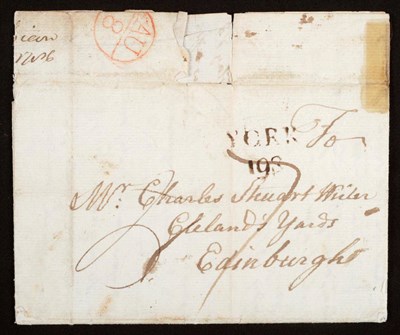 1786
8 AU
YORK To
198
Mr. Charles Steuart Writer
Cleland's Yards
Edinburgh